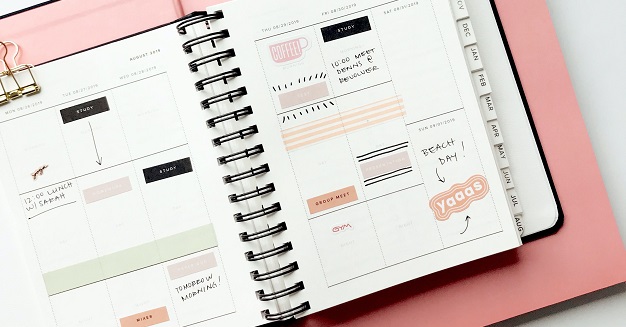 AUGUST 2019
MON 08/26/2019
TUE 08/27/2019
WED 08/28/2019
STUDY
12:00 LUNCH
W/ SARAH
STUDY
TOMORROW
MORNING!
MIXER
THU 08/29/2019
FRI 08/30/2019
SAT 08/31/2019
COFFEE
STUDY
10:00 MEET
DENNS @
DEVOLVER
GROUP MEET
GYM
SUN 09/01/2019
BEACH
DAY!
yaaas
NOV
DEC
JAN
FEB
MAR
APR
MAY
JUN
JUL
AUG